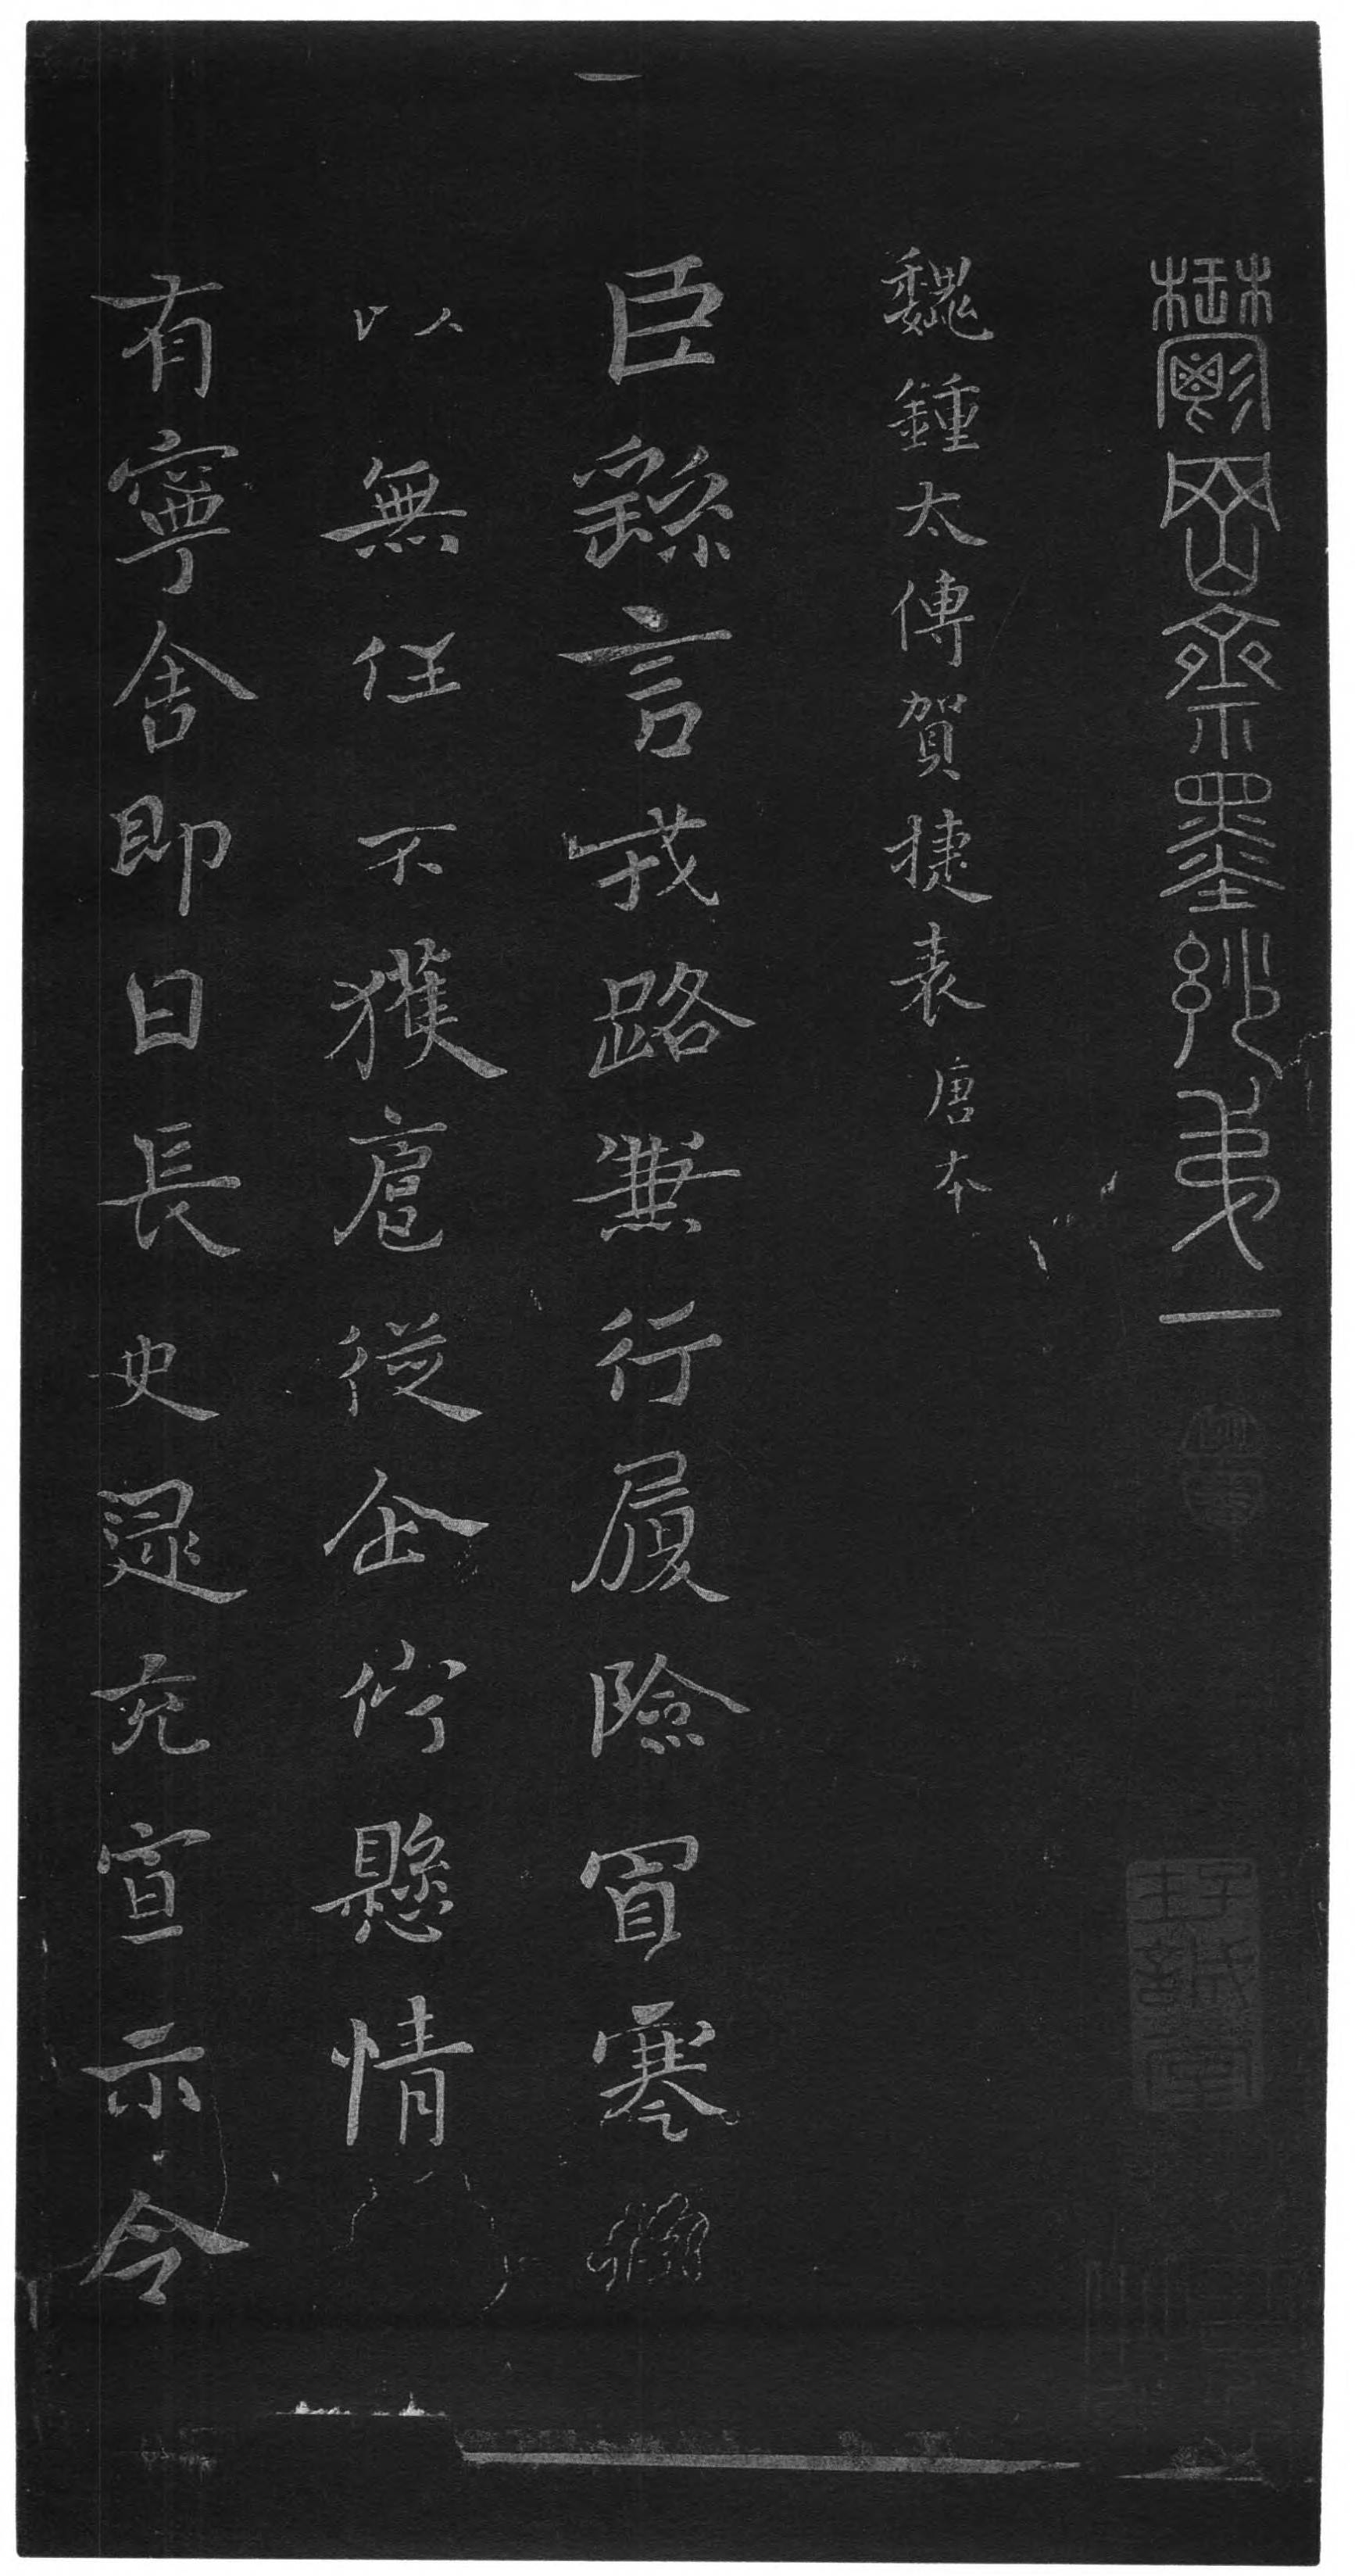 鬱岡齋墨妙弟一
魏鍾太傅賀捷表 唐本
臣繇言戎路兼行履險冒寒臣
以無任不獲扈從企佇懸情無
有寧舍即日長史逯充宣示令